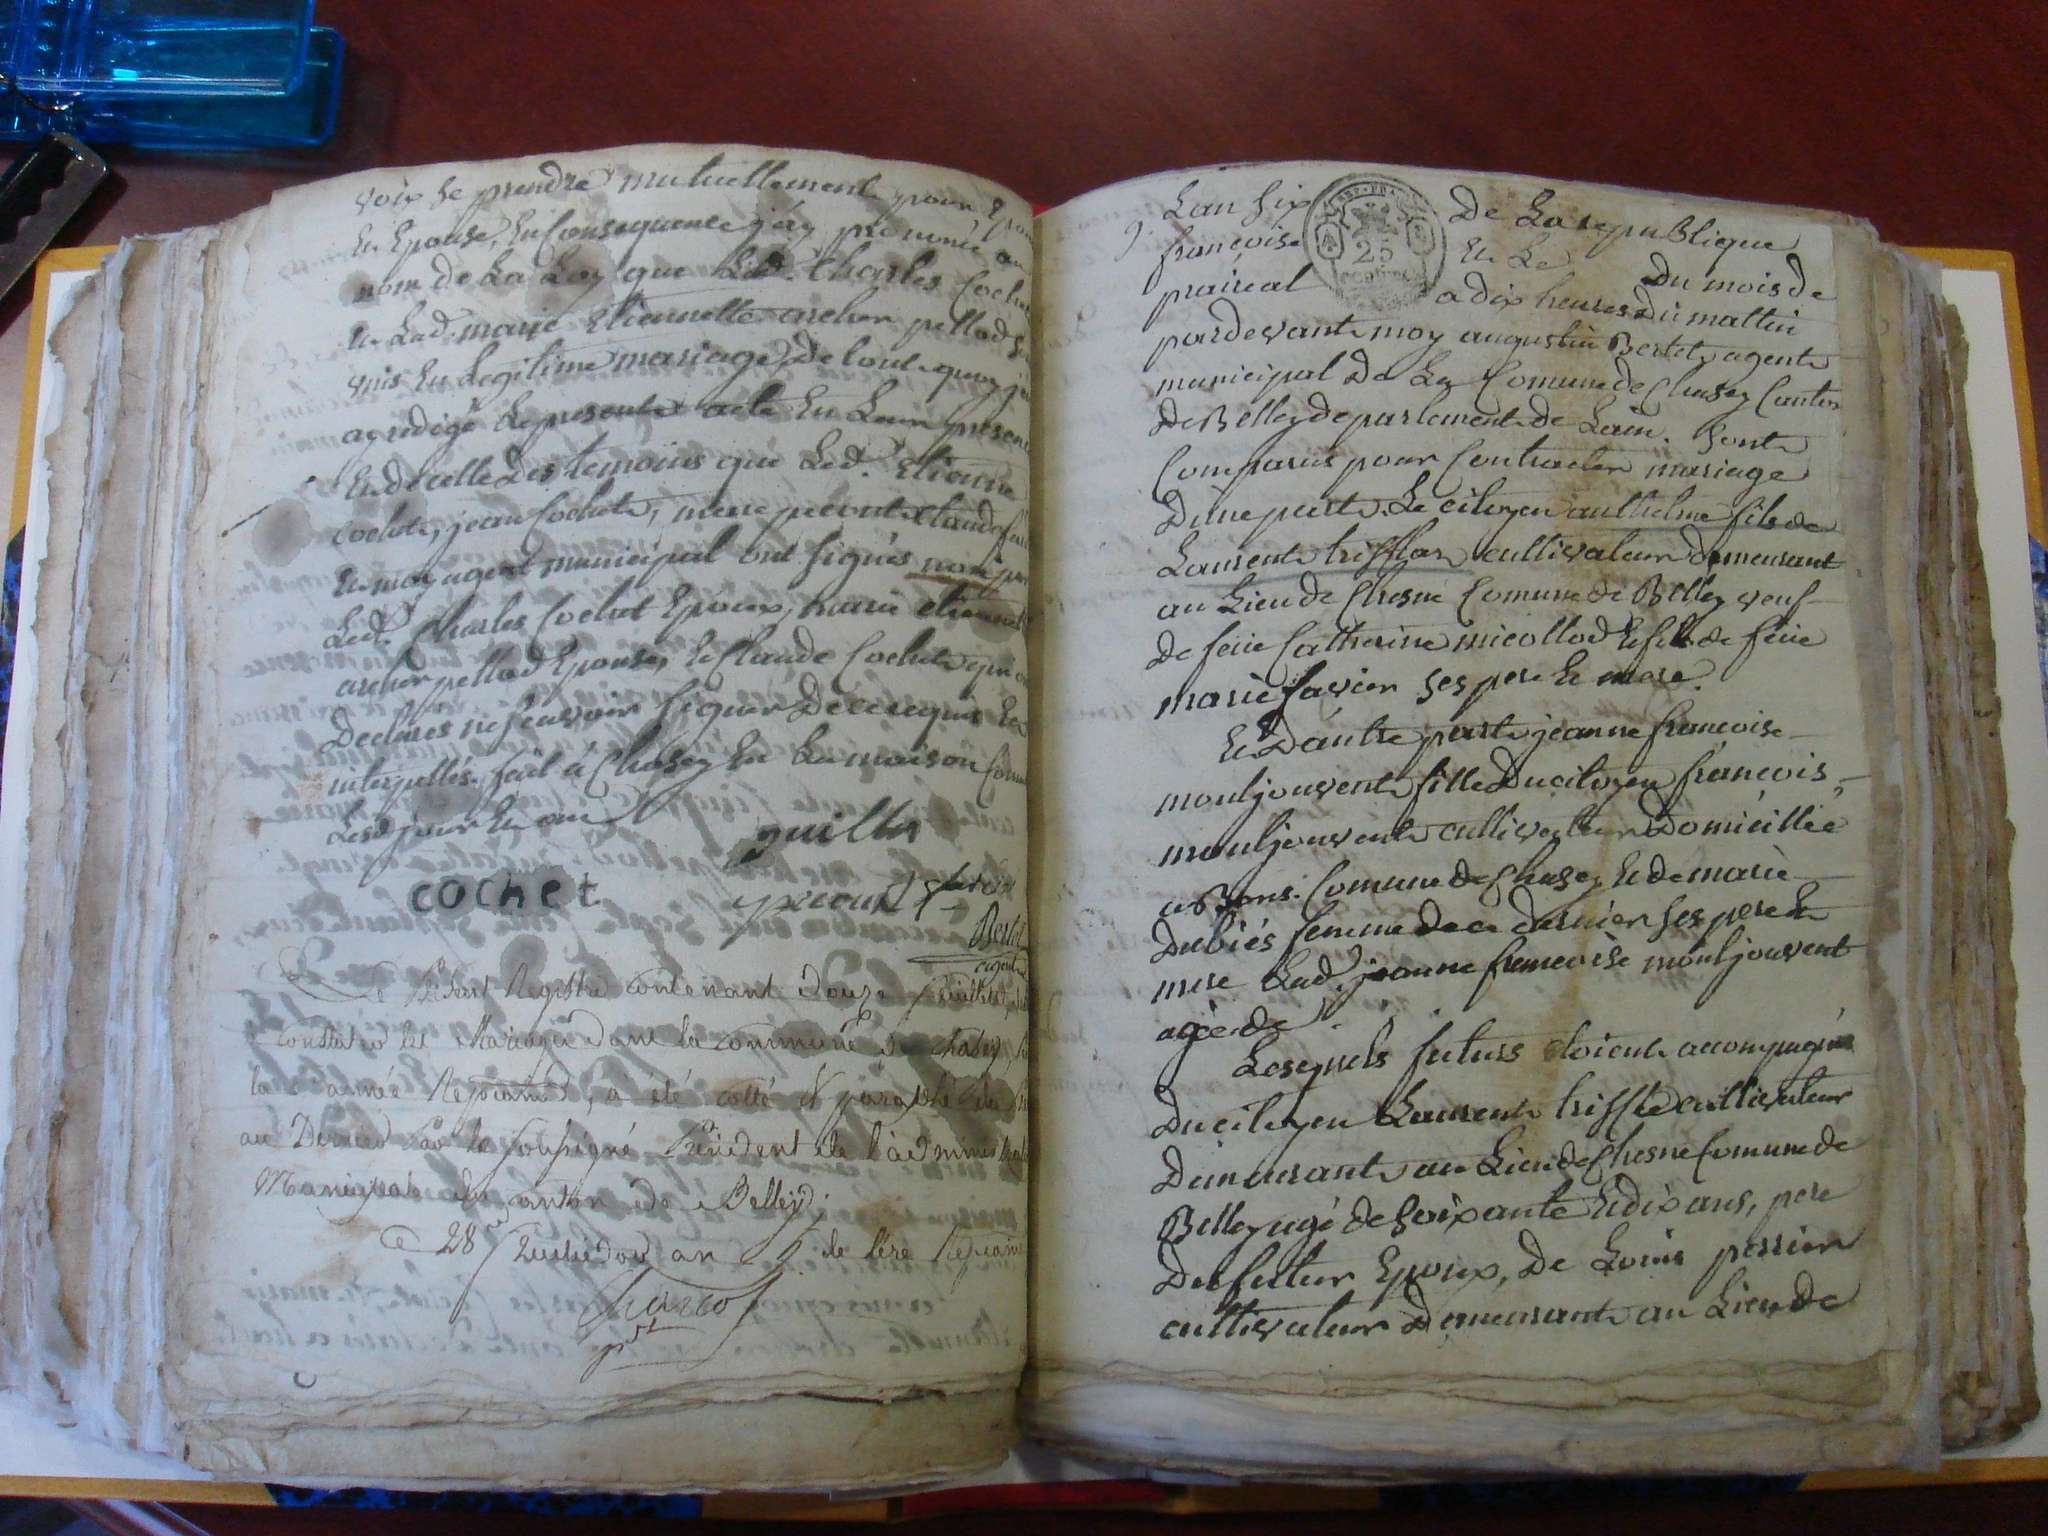 voix se prendre mutuellement pour
Et Epouse, En Consequence j'ay prononcé au
nom de La Loy que Led. Charles Cochet
Et Lad. marie Etiennette archer pellod
unis En Legitime mariage, De tout quoy j'ai
ay redigé Le present acte En Leur presence
Et de celle Des temoins que Led. Etienne
Cochet, jean Cochet,
Et moy agent municipal ont signés non pas
Led. Charles Cochet Epoux, marie etiennette
archer pellod Epouse, Et Claude Cochet qui ont
Declarés ne scavoir signer De ce requis Et
interpellés. fait à Chasey En La maison
Lesd. jour Et an
guillon
cochet
Bertet
agent
Le Présent Registre contenant douze feuillets
constater les Mariages dans la commune de Chasey,
la année Républicaine, a été cotté et paraphé du
au Dernier Par le soussigné Président de l'administration
Municipale du canton de Belley
ce 28 an de l'ère
L'an six De La republique
9.
francoise Et Le Du mois de
REP. FRA.
25
centimes
prairéal a dix heures Du mattin
pardevant moy augustin Bertet agent
municipal De La Comune de Chasey Canton
De Belley departement de Lain. Sont
Comparus pour Contracter mariage
D'une part Le citoyen anthelme fils de
Laurent trifflar cultivateur demeurant
au Lieu de Chesne Comune de Belley veuf
De feüe Catherine micollod Et fils de feüe
marie favier ses pere Et mere.
Et D'autre part jeanne francoise
montjouvent fille Du citoyen françois
montjouvent cultivateur Domicillié
a Bons Comune de Chasey Et de marie
Dubiés femme de ce dernier ses pere Et
mere Lad. jeanne francoise montjouvent
agée de
Lesquels futurs etoient accompagnés
Du citoyen Laurent triffle cultivateur
Demeurant au Lieu de Chesne Comune de
Belley agé de soixante Et dix ans, pere
Du futur Epoux, De Louis perrier
cultivateur Demeurant au Lieu de